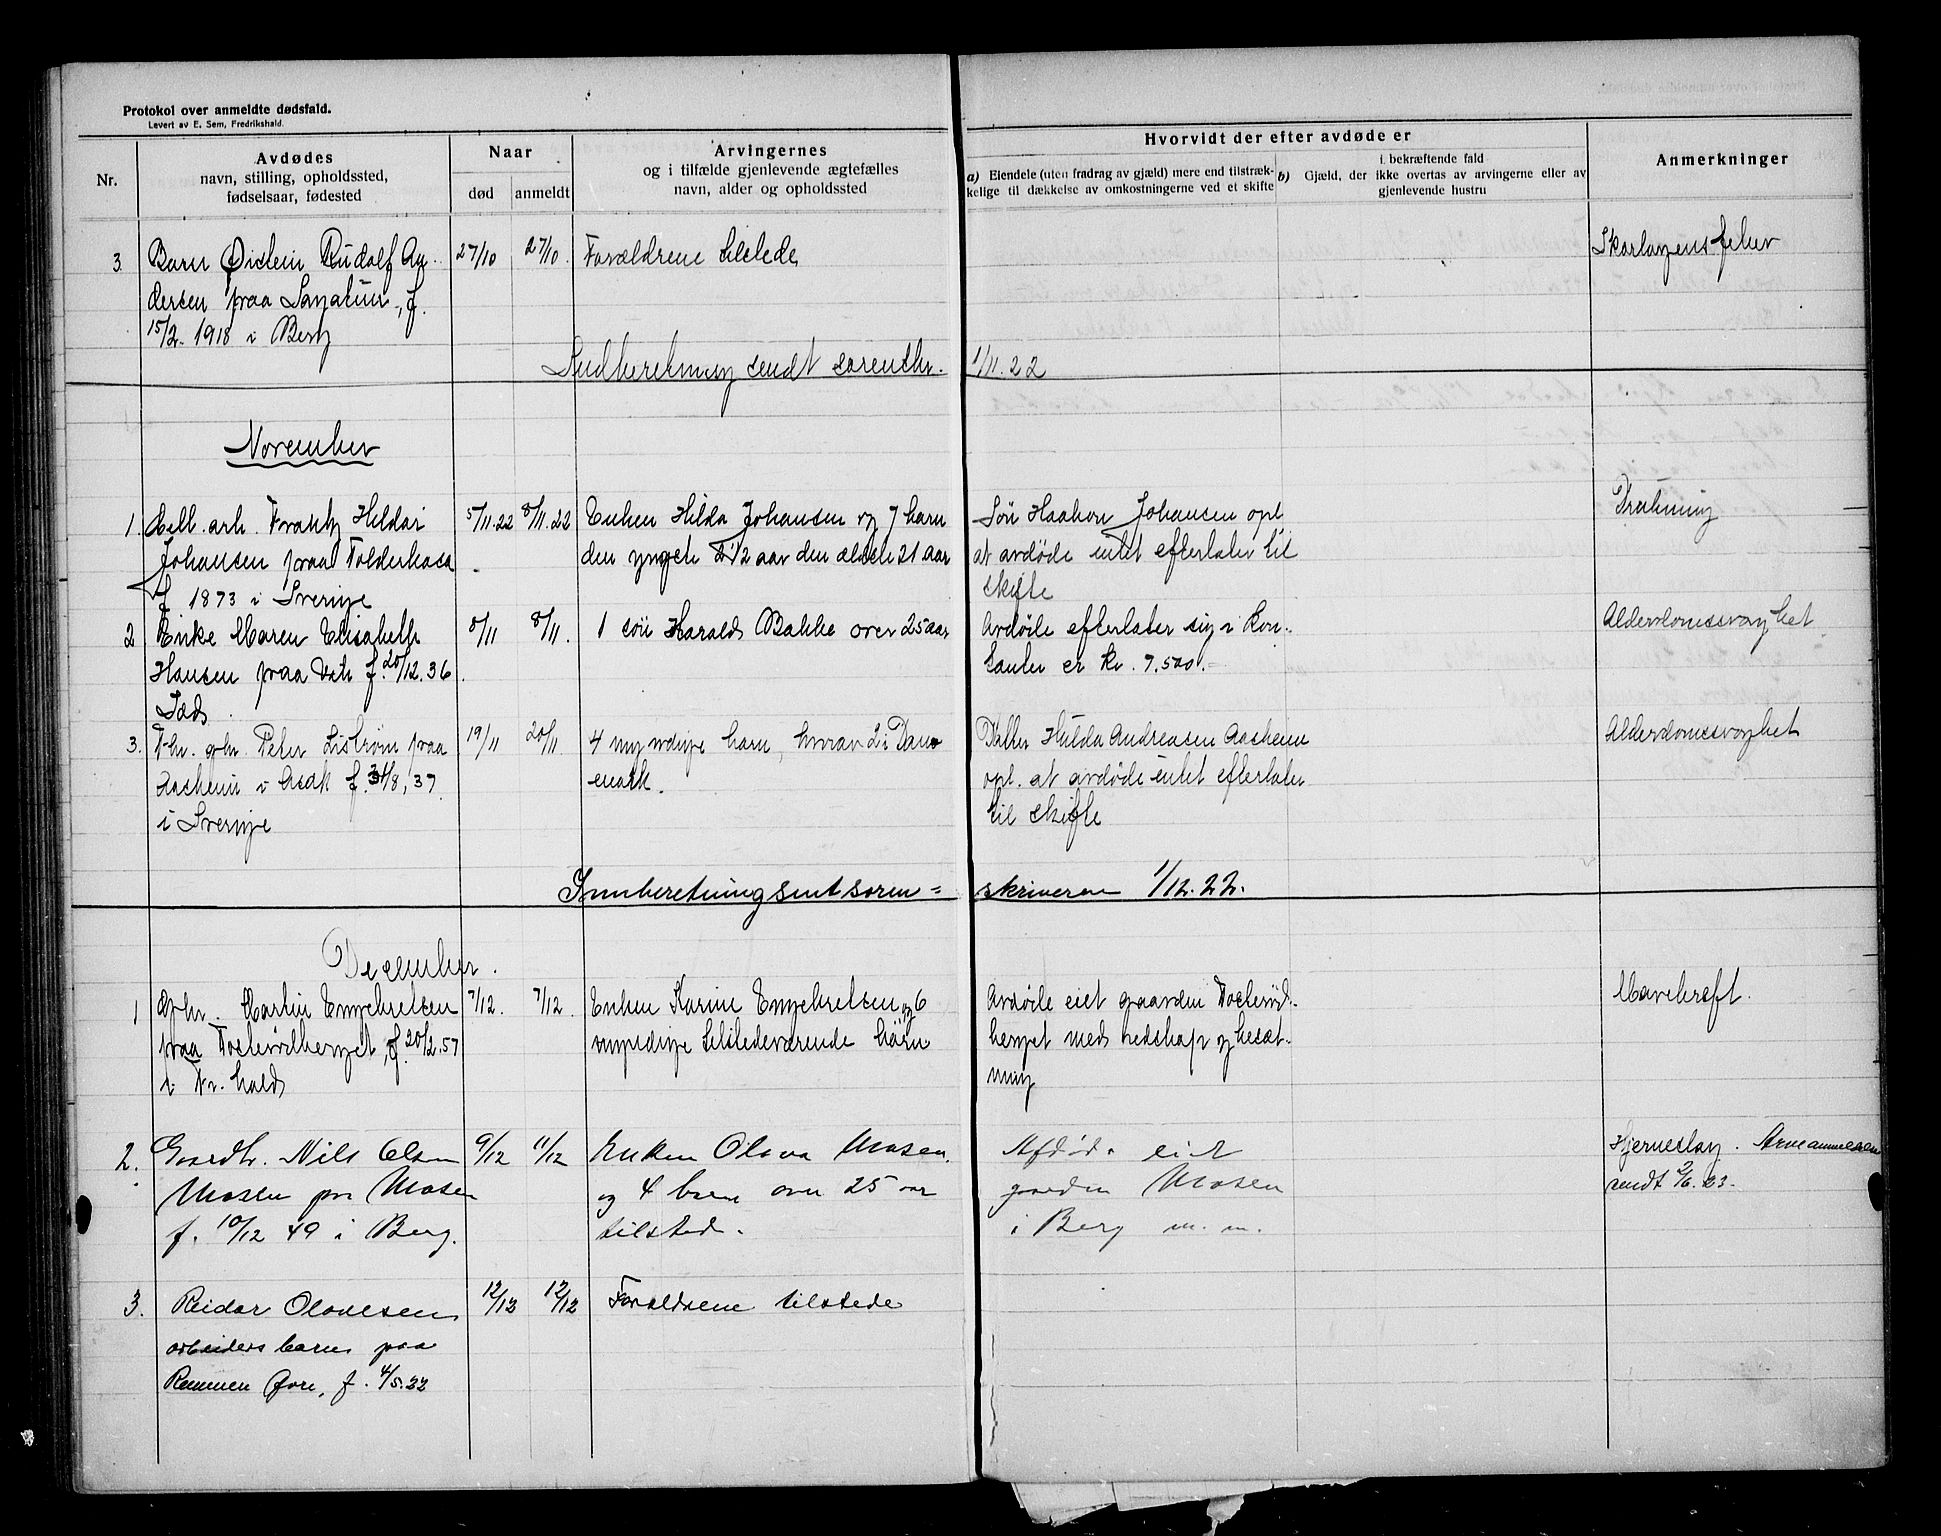 Protokol over anmeldte dødsfald.
Levert av E. Sem, Fredrikshald.
Nr.
Avdødes
navn, stilling, opholdssted,
fødselsaar, fødested
Naar
død
anmeldt
Arvingernes
og i tilfælde gjenlevende ægtefælles
navn, alder og opholdssted
Hvorvidt der efter avdøde er
a) Eiendele (uten fradrag av gjæld) mere end tilstræk-
kelige til dækkelse av omkostningerne ved et skifte
i bekræftende fald
b) Gjæld, der ikke overtas av arvingerne eller av
gjenlevende hustru
Anmerkninger
3. Barn Øistein Rudolf An-
dersen paa f.
15/2. 1918 i Berg
27/10
27/10
Forældrene tilstede
Skarlagensfeber
Indberetning sendt sorenskr. 1/11.22
November
1. Cell. arb. Frantz Hildar
Johansen paa Tolderkasa
f. 1873 i Sverige
5/11.22
8/11.22
Enken Hilda Johansen og 7 barn
den yngste 2 1/2 aar den ældste 21 aar
Søn Haakon Johansen opl.
at avdøde intet efterlater til
skifte
Drukning
2 Enke Maren Elisabeth
Hansen paa f. 20/12.36
Id
8/11
8/11.
1 søn Harald Bakke over 25 aar
Avdøde efterlater sig i kon-
tanter er kr. 7.500.-
Alderdomssvaghet
3. Fhv. gbr. Peter Liström paa
Aasheim i Asak f. 31/8, 37
i Sverige
19/11
20/11
4 myndige barn, hvorav 2 i Dan-
mark.
Datter Hulda Andreasen Aasheim
opl. at avdøde intet efterlater
til skifte
Alderdomssvaghet
Innberetning sent soren= skriveren 1/12.22.
December.
1 Gbr. Martin Engebretsen
paa Toskevilberget, f. 20/2.57
i Fr.hald
7/12.
7/12.
Enken Karine Engebretsen og 6
myndige tilstedeværende børn
Avdøde eiet gaarden
berget med redskap og besæt-
ning
Mavekræft.
2. Gaardbr. Nils Olsen
Mosen paa Mosen
f. 10/12 49 i Berg.
9/12
11/12
Enken Olava Mosen
og 4 barn over 25 aar
tilstede.
Afdøde eiet
gaarden Mosen
i Berg m. m.
Hjerneslag. Arveanmeldelse
sendt 2/6.23.
3. Reidar Olavesen
arbeiders barn paa
Remmen Øvre, f. 4/5.22
12/12
12/12
Forældrene tilstede